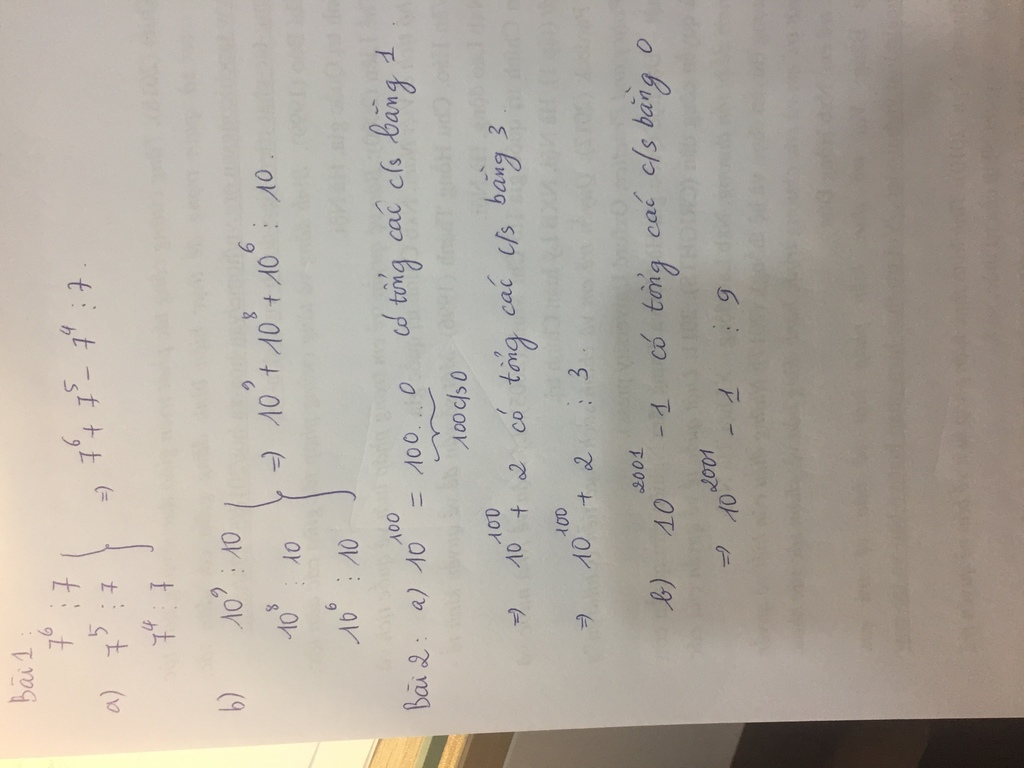 Bài 1:
7⁶ ⋮ 7
a) 7⁵ ⋮ 7 } => 7⁶ + 7⁵ - 7⁴ ⋮ 7.
7⁴ ⋮ 7
b) 10⁹ ⋮ 10
10⁸ ⋮ 10 } => 10⁹ + 10⁸ + 10⁶ ⋮ 10.
10⁶ ⋮ 10
Bài 2: a) 10¹⁰⁰ = 100...0 có tổng các c/s bằng 1
100 c/s 0
=> 10¹⁰⁰ + 2 có tổng các c/s bằng 3
=> 10¹⁰⁰ + 2 ⋮ 3
b) 10²⁰⁰¹ - 1 có tổng các c/s bằng 0
=> 10²⁰⁰¹ - 1 ⋮ 9